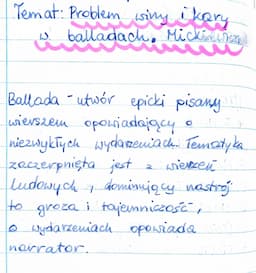 Temat: Problem winy i kary
w balladach. Mickiewicza
Ballada - utwór epicki pisany
wierszem opowiadający o
niezwykłych wydarzeniach. Tematyka
zaczerpnięta jest z wierzeń
ludowych, dominujący nastrój
to groza i tajemniczość,
o wydarzeniach opowiada
narrator.